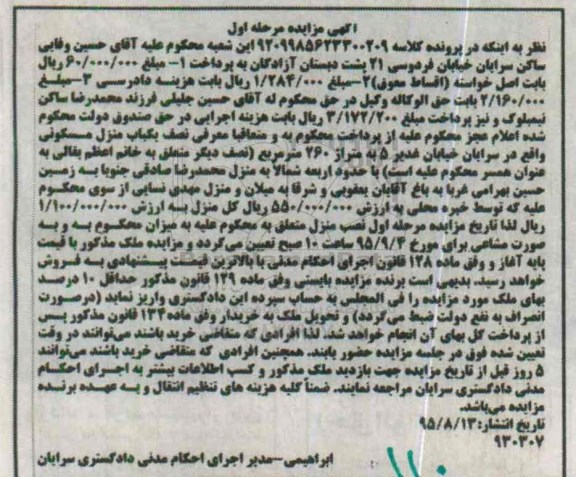 آگهی مزایده مرحله اول
نظر به اینکه در پرونده کلاسه ۹۲۰۹۹۸۵۶۲۳۳۰۰۲۰۹ این شعبه محکوم علیه آقای حسین وفایی
ساکن سرایان خیابان فردوسی ۲۱ پشت دبستان آزادگان به پرداخت ۱- مبلغ ۶۰/۰۰۰/۰۰۰ ریال
بابت اصل خواسته (اقساط معوق)۲-مبلغ ۱/۲۸۴/۰۰۰ ریال بابت هزینه دادرسی ۳-مبلغ
۲/۱۶۰/۰۰۰ بابت حق الوکاله وکیل در حق محکوم له آقای حسین جلیلی فرزند محمدرضا ساکن
نیمبلوک و نیز پرداخت مبلغ ۳/۱۷۲/۲۰۰ ریال بابت هزینه اجرایی در حق صندوق دولت محکوم
شده اعلام عجز محکوم علیه از پرداخت محکوم به و متعاقبا معرفی نصف یکباب منزل مسکونی
واقع در سرایان خیابان غدیر ۵ به متراژ ۲۶۰ مترمربع (نصف دیگر متعلق به خانم اعظم بقالی به
عنوان همسر محکوم علیه است) با حدود اربعه شمالا به منزل محمدرضا صادقی جنوبا به زمین
حسین بهرامی غربا به باغ آقایان یعقوبی و شرقا به میلان و منزل مهدی نسایی از سوی محکوم
علیه که توسط خبره محلی به ارزش ۵۵۰/۰۰۰/۰۰۰ ریال کل منزل به ارزش ۱/۱۰۰/۰۰۰/۰۰۰
ریال لذا تاریخ مزایده مرحله اول نصب منزل متعلق به محکوم علیه به میزان محکوم به و به
صورت مشاعی برای مورخ ۹۵/۹/۴ ساعت ۱۰ صبح تعیین می‌گردد و مزایده ملک مذکور با قیمت
پایه آغاز و وفق ماده ۱۲۸ قانون اجرای احکام مدنی با بالاترین قیمت پیشنهادی به فروش
خواهد رسید، بدیهی است برنده مزایده بایستی وفق ماده ۱۲۹ قانون مذکور حداقل ۱۰ درصد
بهای ملک مورد مزایده را فی المجلس به حساب سپرده این دادگستری واریز نماید (درصورت
انصراف به نفع دولت ضبط می‌گردد) و تحویل ملک به خریدار وفق ماده ۱۳۴ قانون مذکور پس
از پرداخت کل بهای آن انجام خواهد شد. لذا افرادی که متقاضی خرید باشند می‌توانند در وقت
تعیین شده فوق در جلسه مزایده حضور یابند. همچنین افرادی که متقاضی خرید باشند می‌توانند
۵ روز قبل از تاریخ مزایده جهت بازدید ملک مذکور و کسب اطلاعات بیشتر به اجرای احکام
مدنی دادگستری سرایان مراجعه نمایند. ضمناً کلیه هزینه های تنظیم انتقال و به عهده برنده
مزایده می‌باشد.
تاریخ انتشار: ۹۵/۸/۱۳
۹۳۰۳۰۷
ابراهیمی-مدیر اجرای احکام مدنی دادگستری سرایان